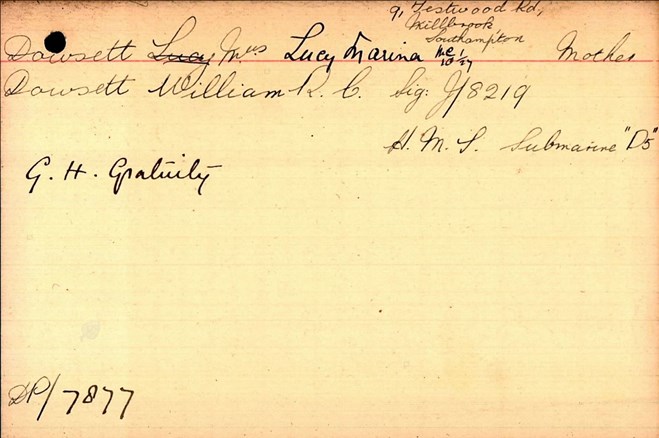 9, Testwood Rd,
Millbrook
Southampton
Dowsett Lucy Mrs Lucy Marina Mother
Dowsett William R. C. Sig: J/8219
H. M. S. Submarine "D5"
G. H. Gratuity
DP/7877